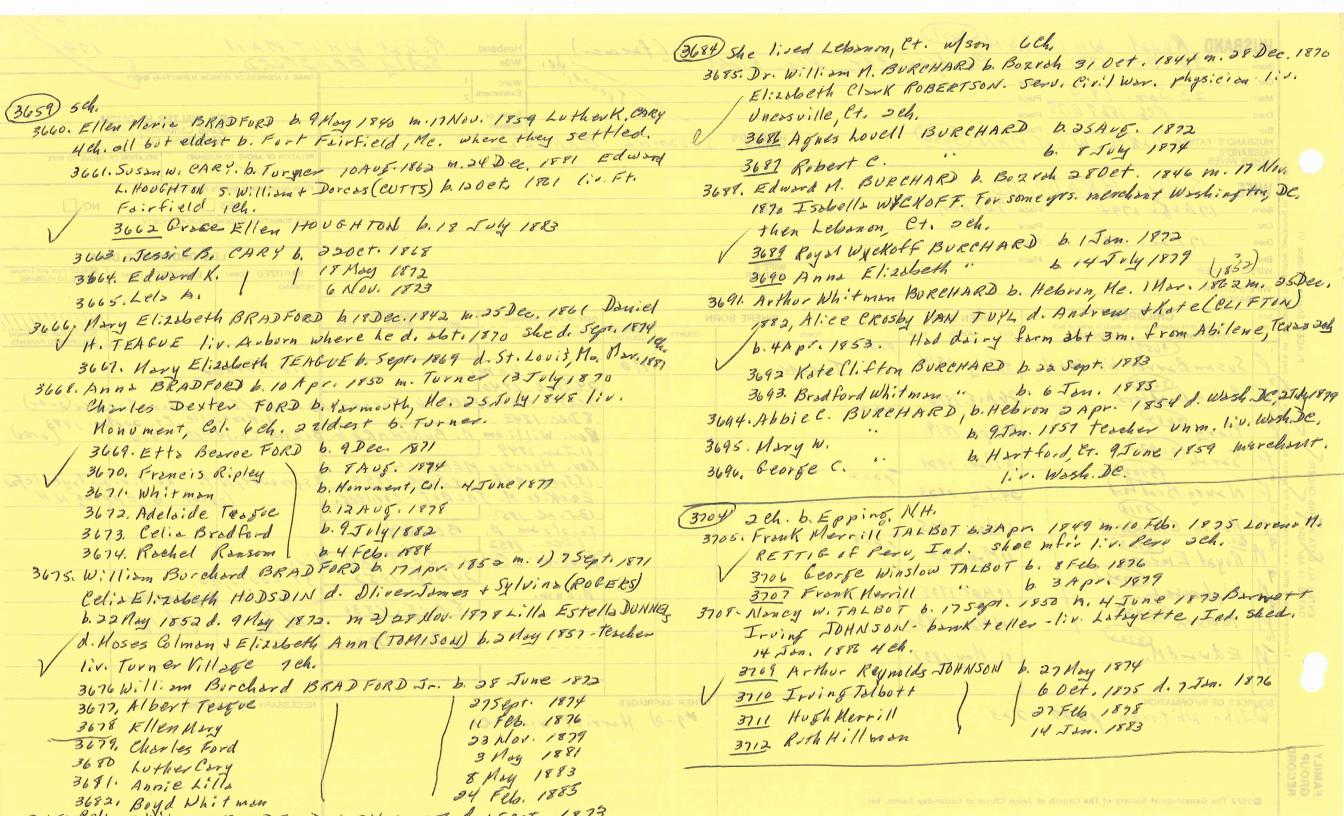 3659 5ch.
3660. Ellen Maria BRADFORD b. 9 May 1840 m. 17 Nov. 1859 Luther K. CARY
4ch. all but eldest b. Fort Fairfield, Me. where they settled.
3661. Susan W. CARY b. Turner 10 Aug. 1862 m. 24 Dec. 1881 Edward
L. HOUGHTON s. William + Dorcas (CUTTS) b. 12 Oct. 1861 liv. Ft.
Fairfield 1ch.
3662 Grace Ellen HOUGHTON b. 18 July 1883
3663. Jessie B. CARY b. 22 Oct. 1868
3664. Edward K. 18 May 1872
3665. Lela A. 6 Nov. 1873
3666. Mary Elizabeth BRADFORD b. 18 Dec. 1842 m. 25 Dec. 1861 Daniel
H. TEAGUE liv. Auburn where he d. abt. 1870 she d. Sept. 1874 1ch.
3667. Mary Elizabeth TEAGUE b. Sept. 1869 d. St. Louis, Mo. Mar. 1881
3668. Anna BRADFORD b. 10 Apr. 1850 m. Turner 13 July 1870
Charles Dexter FORD b. Yarmouth, Me. 25 July 1848 liv.
Monument, Col. 6ch. 2 eldest b. Turner.
3669. Etta Bearce FORD b. 9 Dec. 1871
3670. Francis Ripley b. 8 Aug. 1874
3671. Whitman b. Monument, Col. 4 June 1877
3672. Adelaide Teague b. 12 Aug. 1878
3673. Celia Bradford b. 9 July 1882
3674. Rachel Ransom b. 4 Feb. 1884
3675. William Burchard BRADFORD b. 17 Apr. 1852 m. 1) 7 Sept. 1871
Celia Elizabeth HODSDIN d. Oliver James + Sylvina (ROGERS)
b. 22 May 1852 d. 9 May 1872. m 2) 28 Nov. 1878 Lilla Estella DUNNEL
d. Moses Colman + Elizabeth Ann (JOMISON) b. 2 May 1857 - teacher
liv. Turner Village 7ch.
3676 William Burchard BRADFORD Jr. b. 28 June 1872
3677. Albert Teague 27 Sept. 1874
3678 Ellen Mary 11 Feb. 1876
3679. Charles Ford 23 Nov. 1879
3680 Luther Cary 3 May 1881
3681. Annie Lilla 8 May 1883
3682. Boyd Whitman 24 Feb. 1885
3684 She lived Lebanon, Ct. w/son 6ch.
3685. Dr. William M. BURCHARD b. Bozrah 31 Oct. 1844 m. 28 Dec. 1870
Elizabeth Clark ROBERTSON. Serv. Civil War. physician liv.
Unersville, Ct. 2ch.
3686 Agnes Lovell BURCHARD b. 25 Aug. 1872
3687 Robert C. " b. 8 July 1874
3688. Edward M. BURCHARD b. Bozrah 28 Oct. 1846 m. 17 Nov.
1870 Isabella WYCKOFF. For some yrs. merchant Washington, DC.
then Lebanon, Ct. 2ch.
3689 Royal Wyckoff BURCHARD b. 1 Jan. 1872
3690 Anna Elizabeth " b. 14 July 1879
(1852?)
3691. Arthur Whitman BURCHARD b. Hebron, Me. 1 Mar. 1862 m. 25 Dec.
1882, Alice Crosby VAN TUYL d. Andrew + Kate (CLIFTON)
b. 4 Apr. 1853. Had dairy farm abt 3m. from Abilene, Texas 2ch
3692 Kate Clifton BURCHARD b. 22 Sept. 1883
3693. Bradford Whitman " b. 6 Jan. 1885
3694. Abbie C. BURCHARD, b. Hebron 2 Apr. 1854 d. Wash. DC 2 July 1879
3695. Mary W. " b. 9 Jan. 1857 teacher unm. liv. Wash. DC.
3696. George C. " b. Hartford, Ct. 9 June 1859 merchant.
liv. Wash. DC.
3704 2ch. b. Epping, N.H.
3705. Frank Merrill TALBOT b. 3 Apr. 1849 m. 10 Feb. 1875 Lorena M.
RETTIG of Peru, Ind. shoe mfr liv. Peru 2ch.
3706 George Winslow TALBOT b. 8 Feb. 1876
3707 Frank Merrill " b 3 Apr. 1879
3708. Nancy W. TALBOT b. 17 Sept. 1850 m. 4 June 1873 Barnett
Irving JOHNSON - bank teller - liv. Lafayette, Ind. She d.
14 Jan. 1886 4ch.
3709 Arthur Reynolds JOHNSON b. 27 May 1874
3710 Irving Talbott 6 Oct. 1875 d. 7 Jan. 1876
3711 Hugh Merrill 27 Feb 1878
3712 Ruth Hillman 14 Jan. 1883